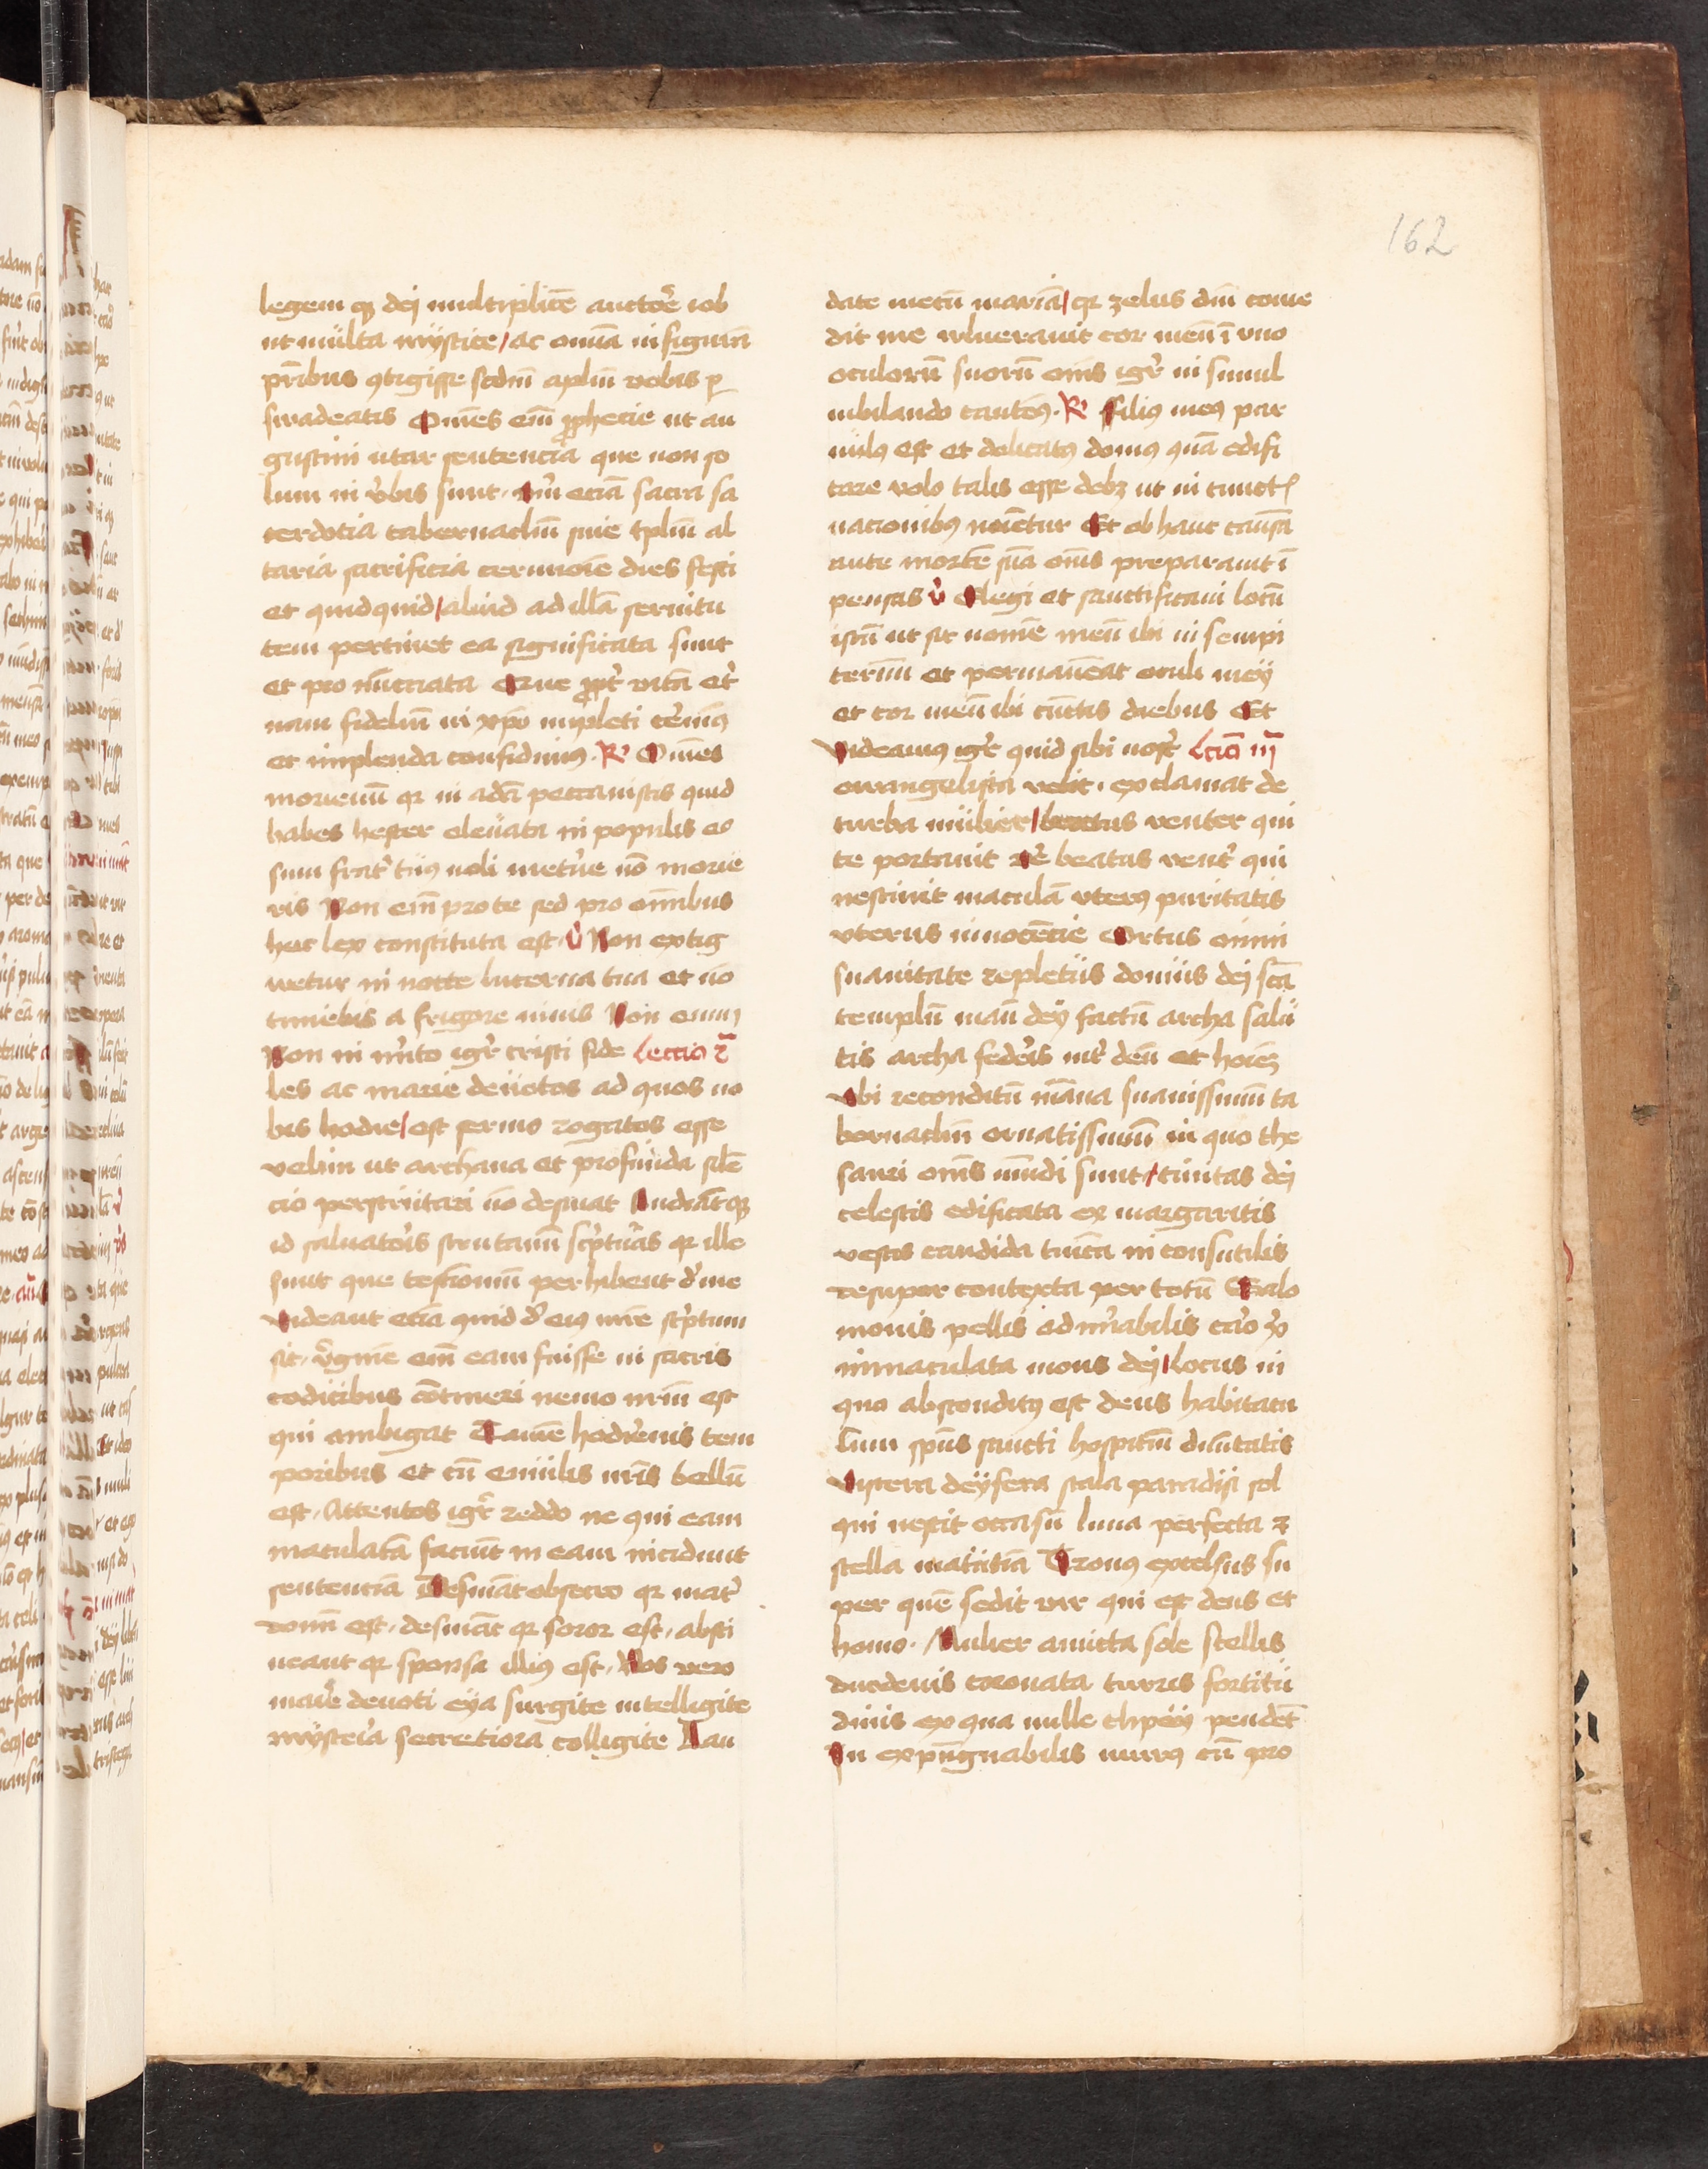 162
legem qꝫ dej multiplicē auctoē iob
ut multa mystice / ac omnia in figurā
pr̄ibus ꝯtigisse scdm̄ aplm̄ vobis ꝑ
suadeatis Om̄es em̄ ꝓphecie ut au
gustini utar sentencia que non so
lum in v̓bis sunt. eciā sacra sa
cerdocia tabernaclm̄ siue tplm̄ al
taria sacrificia cerimoīe dies festi
et quidquid / aliud ad illā seruitu
tem pertinet ea significata sunt
et pro nuncciata Que ꝓpt̓ vitā et̓
nam fideliū in xp̄o impleti
et implenda confidimꝰ. R̓ Om̄es
moriemur qꝛ in adā peccauistis quid
habes hester eleuata in populis eo
sum frat̓ tuꝰ noli met̓ue nō morie
ris Non em̄ pro te sed pro om̄ibus
hec lex constituta est. v̓ Non extig
wetur in nocte lucerna tua et nō
timebis a frigore niuis Non enim
Non in m̓ito igr̓ cristi fide Leccio 2ᵃ
les ac marie deuotos ad quos no
bis hodie / est sermo rogatos esse
velim ut archana et profunda silē
cio perscrutari nō desinat Audiātqꝫ
id saluatoris scrutamī sc̓ptūas qꝛ ille
sunt que testimoniū perhibent d̓ me
Uideant eciā quid d̓ eiꝰ mr̄e sc̓ptum
sit. v̓gnīe em̄ eam fuisse in sacris
codicibus cōtineri nemo nr̄m est
qui ambigat Tamē hodiernis tem
poribus et cū emulis nr̄is bellū
est. Attentos igr̓ reddo ne qui eam
maculatā faciūt in eam incidunt
sentenciā Desināt obsecro qꝛ mat̓
domī est. desināt qꝛ soror est. absti
neant qꝛ sponsa illiꝰ est. Uos vero
marie deuoti eya surgite intelligite
mysteria secretiora colligite Lau
date mecū mariā / qꝛ zelus dm̄ come
dit me wlnerauit cor meū ī vno
oculorū suorū om̄s igr̓ in simul
iubilando cantemꝰ. R̓ Filiꝰ meꝰ par
uulꝰ est et delicatꝰ domus quā edifi
care volo talis esse debꝫ ut in cunctꝭ
nacionibꝰ noīetur Et ob hanc causā
ante mortē suā om̄s preparauit ī
pensas v̓ Elegi et sanctificaui locū
istū ut sit nomē meū ibi in sempi
ternū et permaneat oculi mey
et cor meū ibi cunctis diebus Et
Uideamus igr̓ quid sibi nost̓ Lcō iijᵃ
ewangelista velit. exclamat de
turba mulier / beatus venter qui
te portauit beatus vent̓ qui
nesciuit maculā vterꝰ puritatis
vterus innocēcie Ortus omni
suauitate repletus domus dej sc̄a
templū dey factū archa salu
tis archa federis int̓ deū et hoīes
Ubi reconditū māna suauissimū ta
bernaclm̄ ornatissimū in quo the
sauri om̄s mūdi sunt / ciuitas dej
celestis edificata ex margaritis
vestis candida tunica inconsutilis
desuper contexta per totū Salo
monis pellis admirabilis
inmaculata mons dej / Locus in
quo absconditꝰ est deus habitacu
lum spūs sancti hospiciū diuitatis
Uiscera deyfera scala paradisi sol
qui nescit occasū luna perfecta ⁊
stella matutina Tronꝰ excelsus su
per quē sedit vir qui est deus et
homo. Mulier amicta sole stellis
duodenis coronata turris fortitu
dinis ex qua mille clypey pendēt
In expūgnabilis murꝰ cū pro